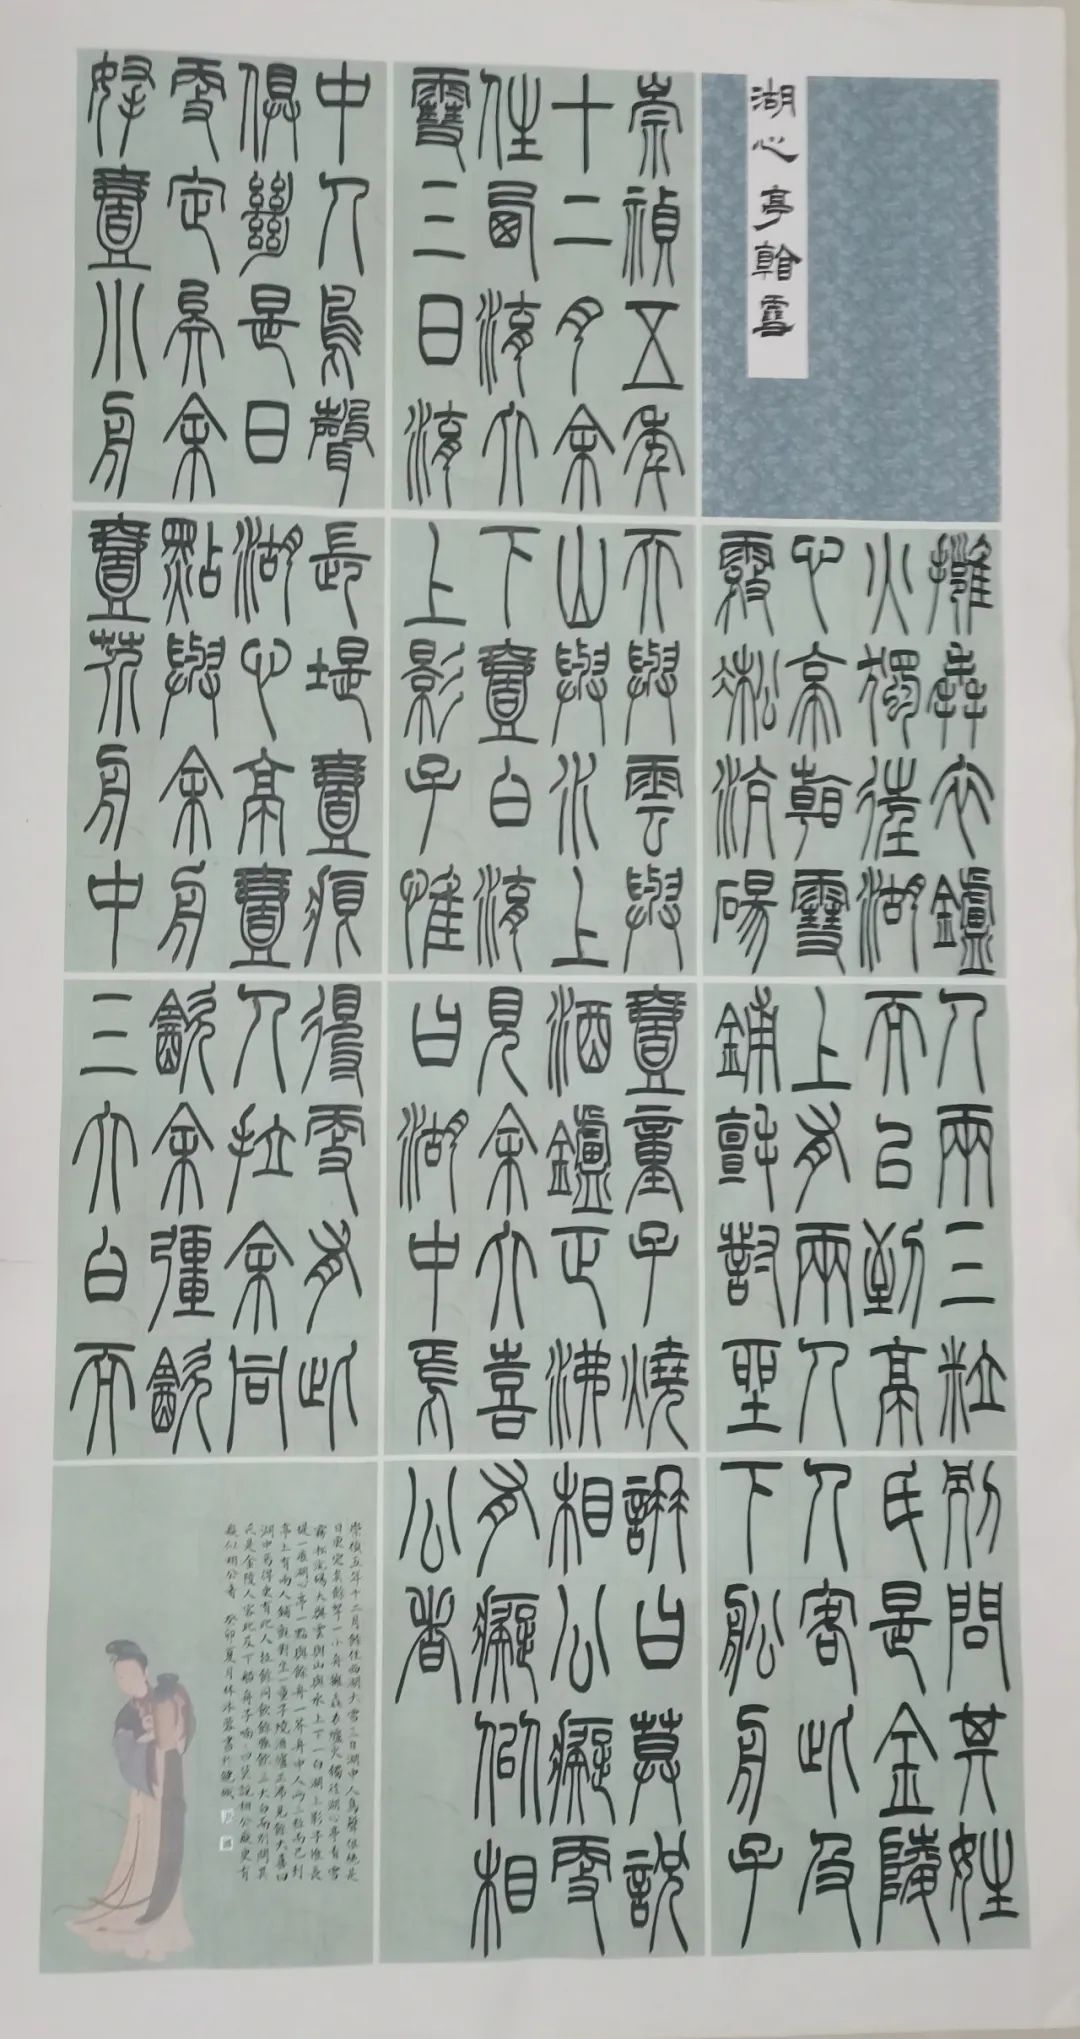 湖心亭看雪
崇禎五年
十二月余
住西湖大
雪三日湖
中人鳥聲
俱絕是日
更定矣余
拏壹小舟
擁毳衣鑪
火獨往湖
心亭看雪
霧凇沆碭
天與雲與
山與水上
下壹白湖
上影子惟
長堤壹痕
湖心亭壹
點與余舟
壹芥舟中
人兩三粒
而已到亭
上有兩人
鋪氈對坐
壹童子燒
酒鑪正沸
見余大喜
曰湖中焉
得更有此
人拉余同
飲余彊飲
三大白而
別問其姓
氏是金陵
人客此及
下船舟子
諵曰莫說
相公癡更
有癡似相
公者
崇禎五年十二月餘住西湖大雪三日湖中人鳥聲俱絕是
日更定矣餘拏一小舟擁毳衣爐火獨往湖心亭看雪
霧凇沆碭天與雲與山與水上下一白湖上影子惟長
堤一痕湖心亭一點與餘舟一芥舟中人兩三粒而已到
亭上有兩人鋪氈對坐一童子燒酒爐正沸見餘大喜曰
湖中焉得更有此人拉餘同飲餘強飲三大白而別問其
氏是金陵人客此及下船舟子喃喃曰莫說相公癡更有
癡似相公者 癸卯夏月林冰蓉書於